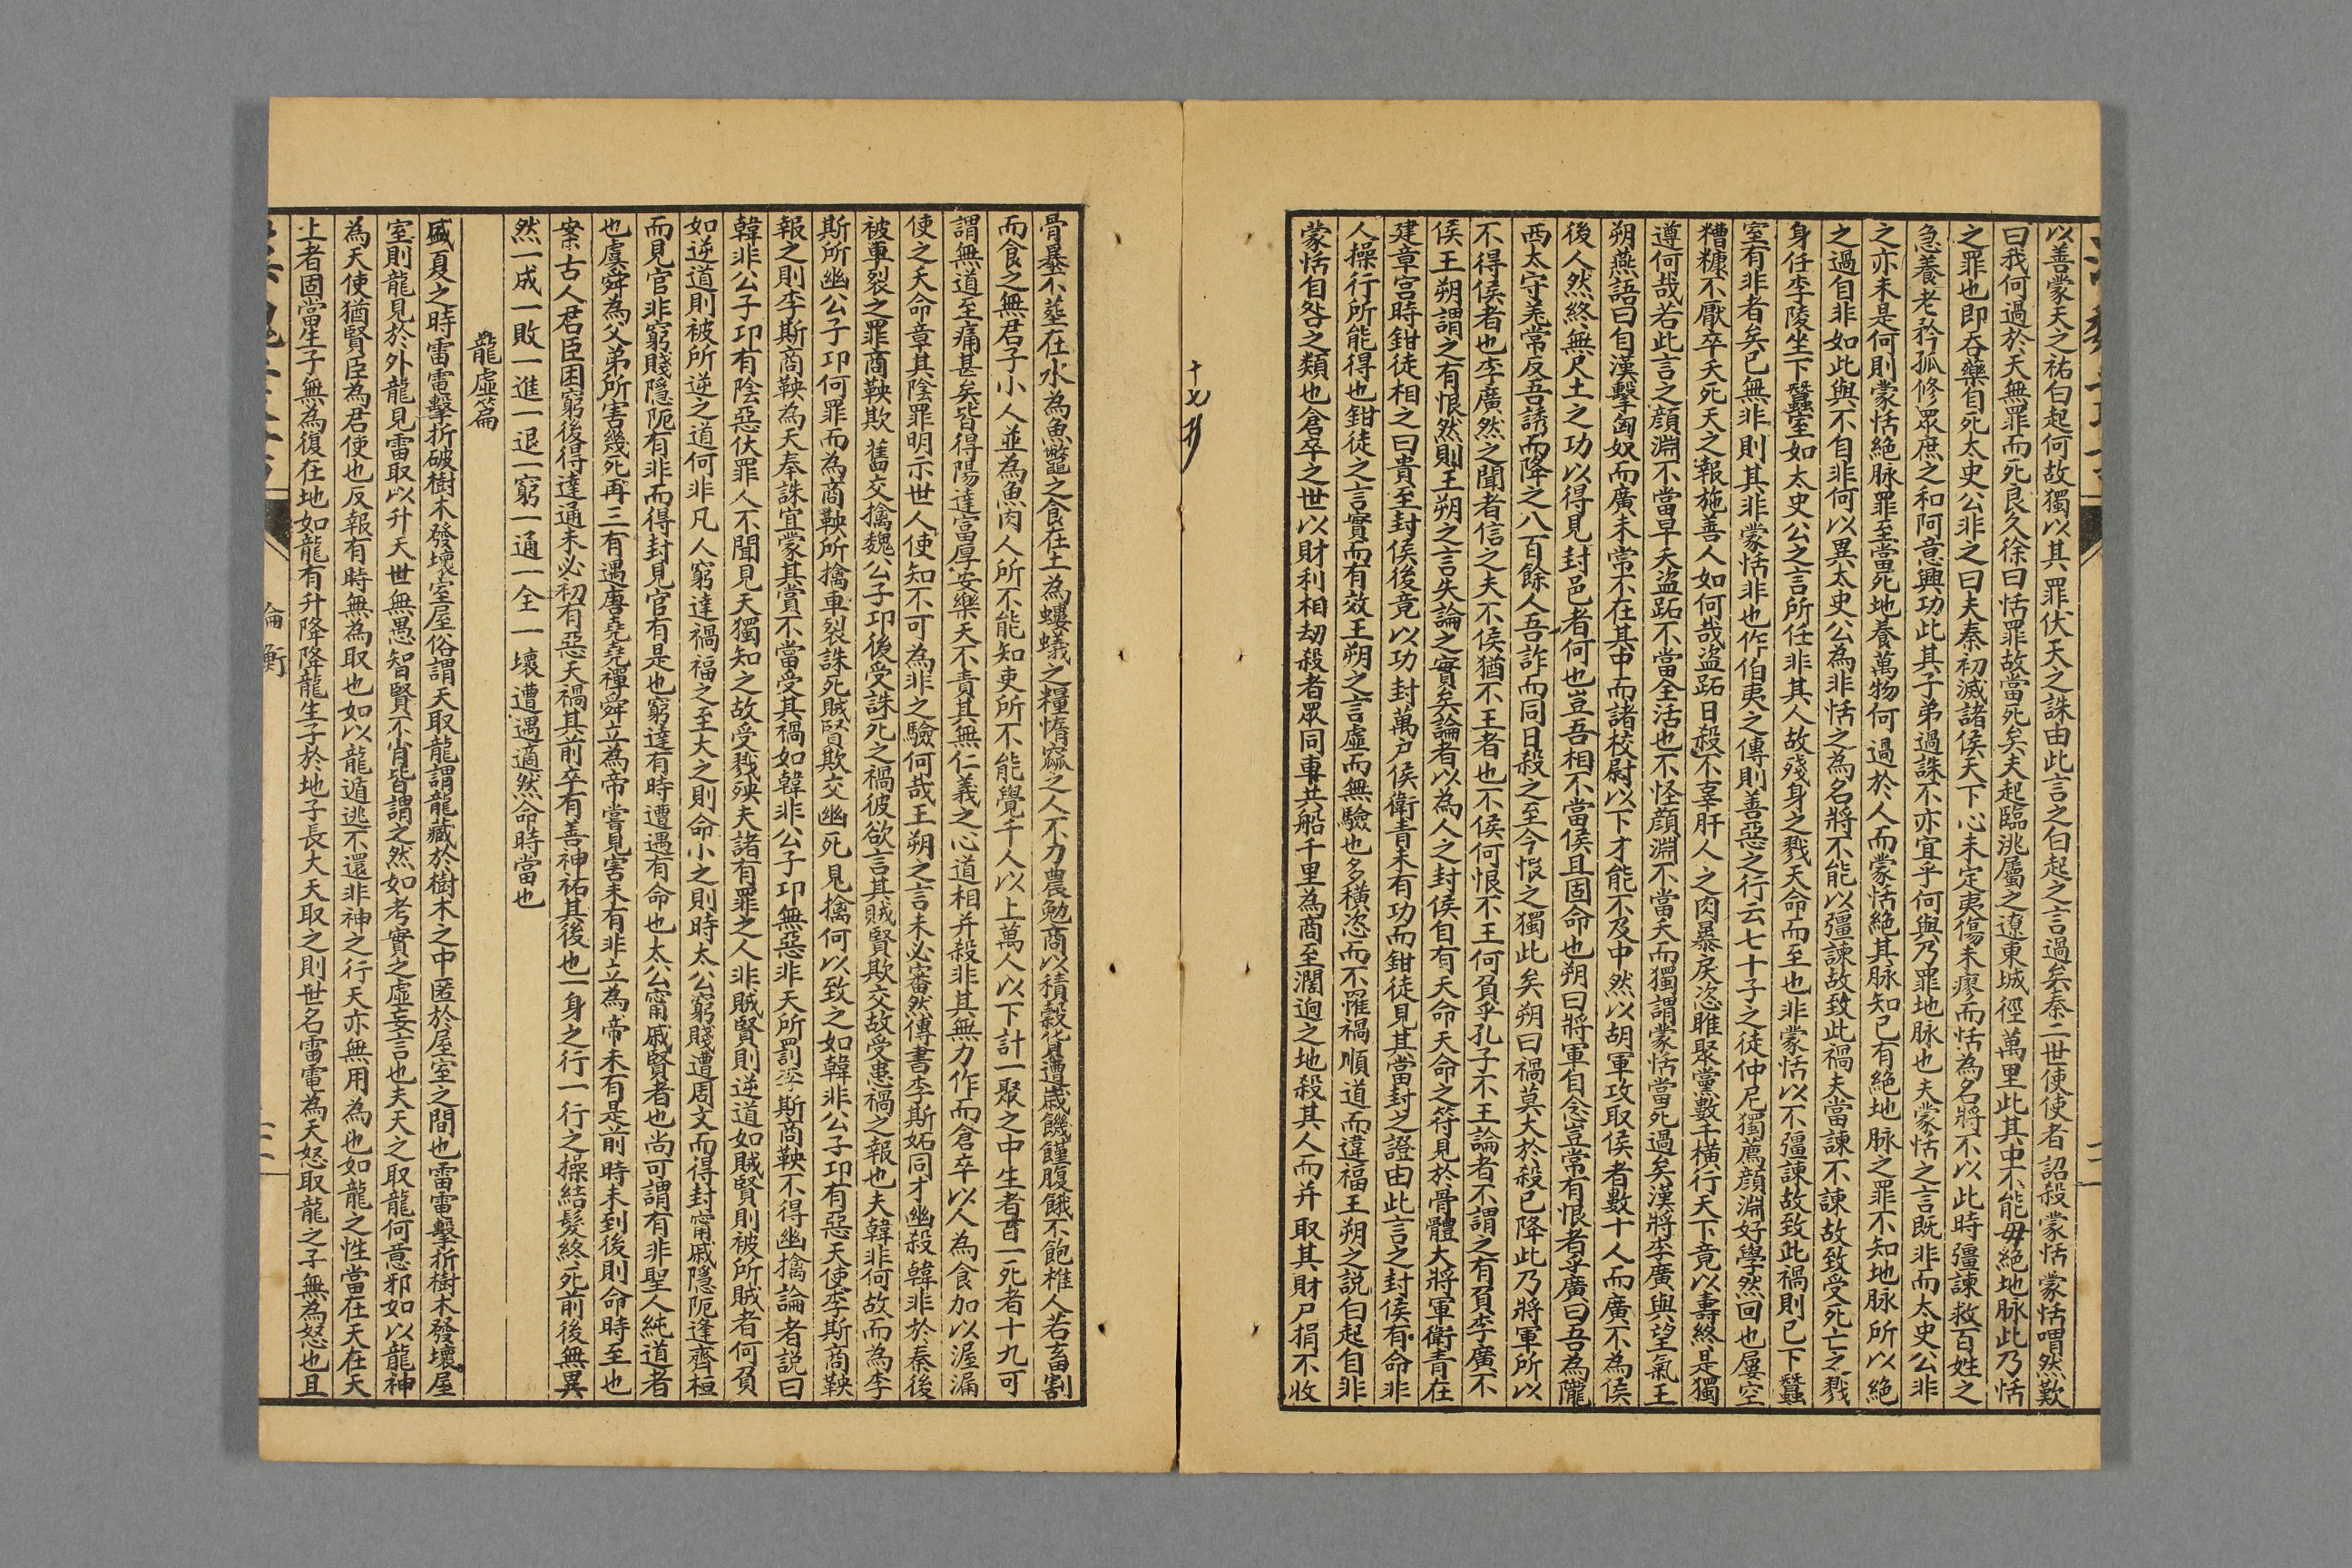 以善蒙天之祐白起何故獨以其罪伏天之誅由此言之白起之言過矣秦二世使使者詔殺蒙恬蒙恬喟然歎
曰我何過於天無罪而死良久徐曰恬罪故當死矣夫起臨洮屬之遼東城徑萬里此其中不能毋絕地脉此乃恬
之罪也即吞藥自死太史公非之曰夫秦初滅諸侯天下心未定夷傷未瘳而恬為名將不以此時彊諫救百姓之
急養老矜孤修眾庶之和阿意興功此其子弟過誅不亦宜乎何與乃罪地脉也夫蒙恬之言既非而太史公非
之亦未是何則蒙恬絕脉罪至當死地養萬物何過於人而蒙恬絕其脉知己有絕地脉之罪不知地脉所以絕
之過自非如此與不自非何以異太史公為非恬之為名將不能以彊諫故致此禍夫當諫不諫故致受死亡之戮
身任李陵坐下蠶室如太史公之言所任非其人故殘身之戮天命而至也非蒙恬以不彊諫故致此禍則己下蠶
室有非者矣己無非則其非蒙恬非也作伯夷之傳則善惡之行云七十子之徒仲尼獨薦顏淵好學然回也屢空
糟糠不厭卒夭死天之報施善人如何哉盜跖日殺不辜肝人之肉暴戾恣睢聚黨數千橫行天下竟以壽終是獨
遵何哉若此言之顏淵不當早夭盜跖不當全活也不怪顏淵不當夭而獨謂蒙恬當死過矣漢將李廣與望氣王
朔燕語曰自漢擊匈奴而廣未常不在其中而諸校尉以下才能不及中然以胡軍攻取侯者數十人而廣不為侯
後人然終無尺土之功以得見封邑者何也豈吾相不當侯且固命也朔曰將軍自念豈常有恨者乎廣曰吾為隴
西太守羌常反吾誘而降之八百餘人吾詐而同日殺之至今恨之獨此矣朔曰禍莫大於殺已降此乃將軍所以
不得侯者也李廣然之聞者信之夫不侯猶不王者也不侯何恨不王何負乎孔子不王論者不謂之有負李廣不
侯王朔謂之有恨然則王朔之言失論之實矣論者以為人之封侯自有天命天命之符見於骨體大將軍衛青在
建章宮時鉗徒相之曰貴至封侯後竟以功封萬戶侯衛青未有功而鉗徒見其當封之證由此言之封侯有命非
人操行所能得也鉗徒之言實而有效王朔之言虛而無驗也多橫恣而不罹禍順道而違福王朔之說白起自非
蒙恬自咎之類也倉卒之世以財利相劫殺者眾同車共船千里為商至濶迥之地殺其人而并取其財尸捐不收
十七形
骨暴不塟在水為魚鱉之食在土為螻蟻之糧惰窳之人不力農勉商以積穀貨遭歲饑饉腹餓不飽椎人若畜割
而食之無君子小人並為魚肉人所不能知吏所不能覺千人以上萬人以下計一聚之中生者百一死者十九可
謂無道至痛甚矣皆得陽達富厚安樂天不責其無仁義之心道相并殺非其無力作而倉卒以人為食加以渥漏
使之夭命章其陰罪明示世人使知不可為非之驗何哉王朔之言未必審然傳書李斯妬同才幽殺韓非於秦後
被車裂之罪商鞅欺舊交擒魏公子卬後受誅死之禍彼欲言其賊賢欺交故受患禍之報也夫韓非何故而為李
斯所幽公子卬何罪而為商鞅所擒車裂誅死賊賢欺交幽死見擒何以致之如韓非公子卬有惡天使李斯商鞅
報之則李斯商鞅為天奉誅宜蒙其賞不當受其禍如韓非公子卬無惡非天所罰李斯商鞅不得幽擒論者說曰
韓非公子卬有陰惡伏罪人不聞見天獨知之故受戮殃夫諸有罪之人非賊賢則逆道如賊賢則被所賊者何負
如逆道則被所逆之道何非凡人窮達禍福之至大之則命小之則時太公窮賤遭周文而得封甯戚隱阨逢齊桓
而見官非窮賤隱阨有非而得封見官有是也窮達有時遭遇有命也太公甯戚賢者也尚可謂有非聖人純道者
也虞舜為父弟所害幾死再三有遇唐堯堯禪舜立為帝嘗見害未有非立為帝未有是前時未到後則命時至也
案古人君臣困窮後得達通未必初有惡天禍其前卒有善神祐其後也一身之行一行之操結髮終死前後無異
然一成一敗一進一退一窮一通一全一壞遭遇適然命時當也
龍虛篇
盛夏之時雷電擊折破樹木發壞室屋俗謂天取龍謂龍藏於樹木之中匿於屋室之間也雷電擊折樹木發壞屋
室則龍見於外龍見雷取以升天世無愚智賢不肖皆謂之然如考實之虛妄言也夫天之取龍何意邪如以龍神
為天使猶賢臣為君使也反報有時無為取也如以龍遁逃不還非神之行天亦無用為也如龍之性當在天在天
上者固當生子無為復在地如龍有升降降龍生子於地子長大天取之則世名雷電為天怒取龍之子無為怒也且
論衡